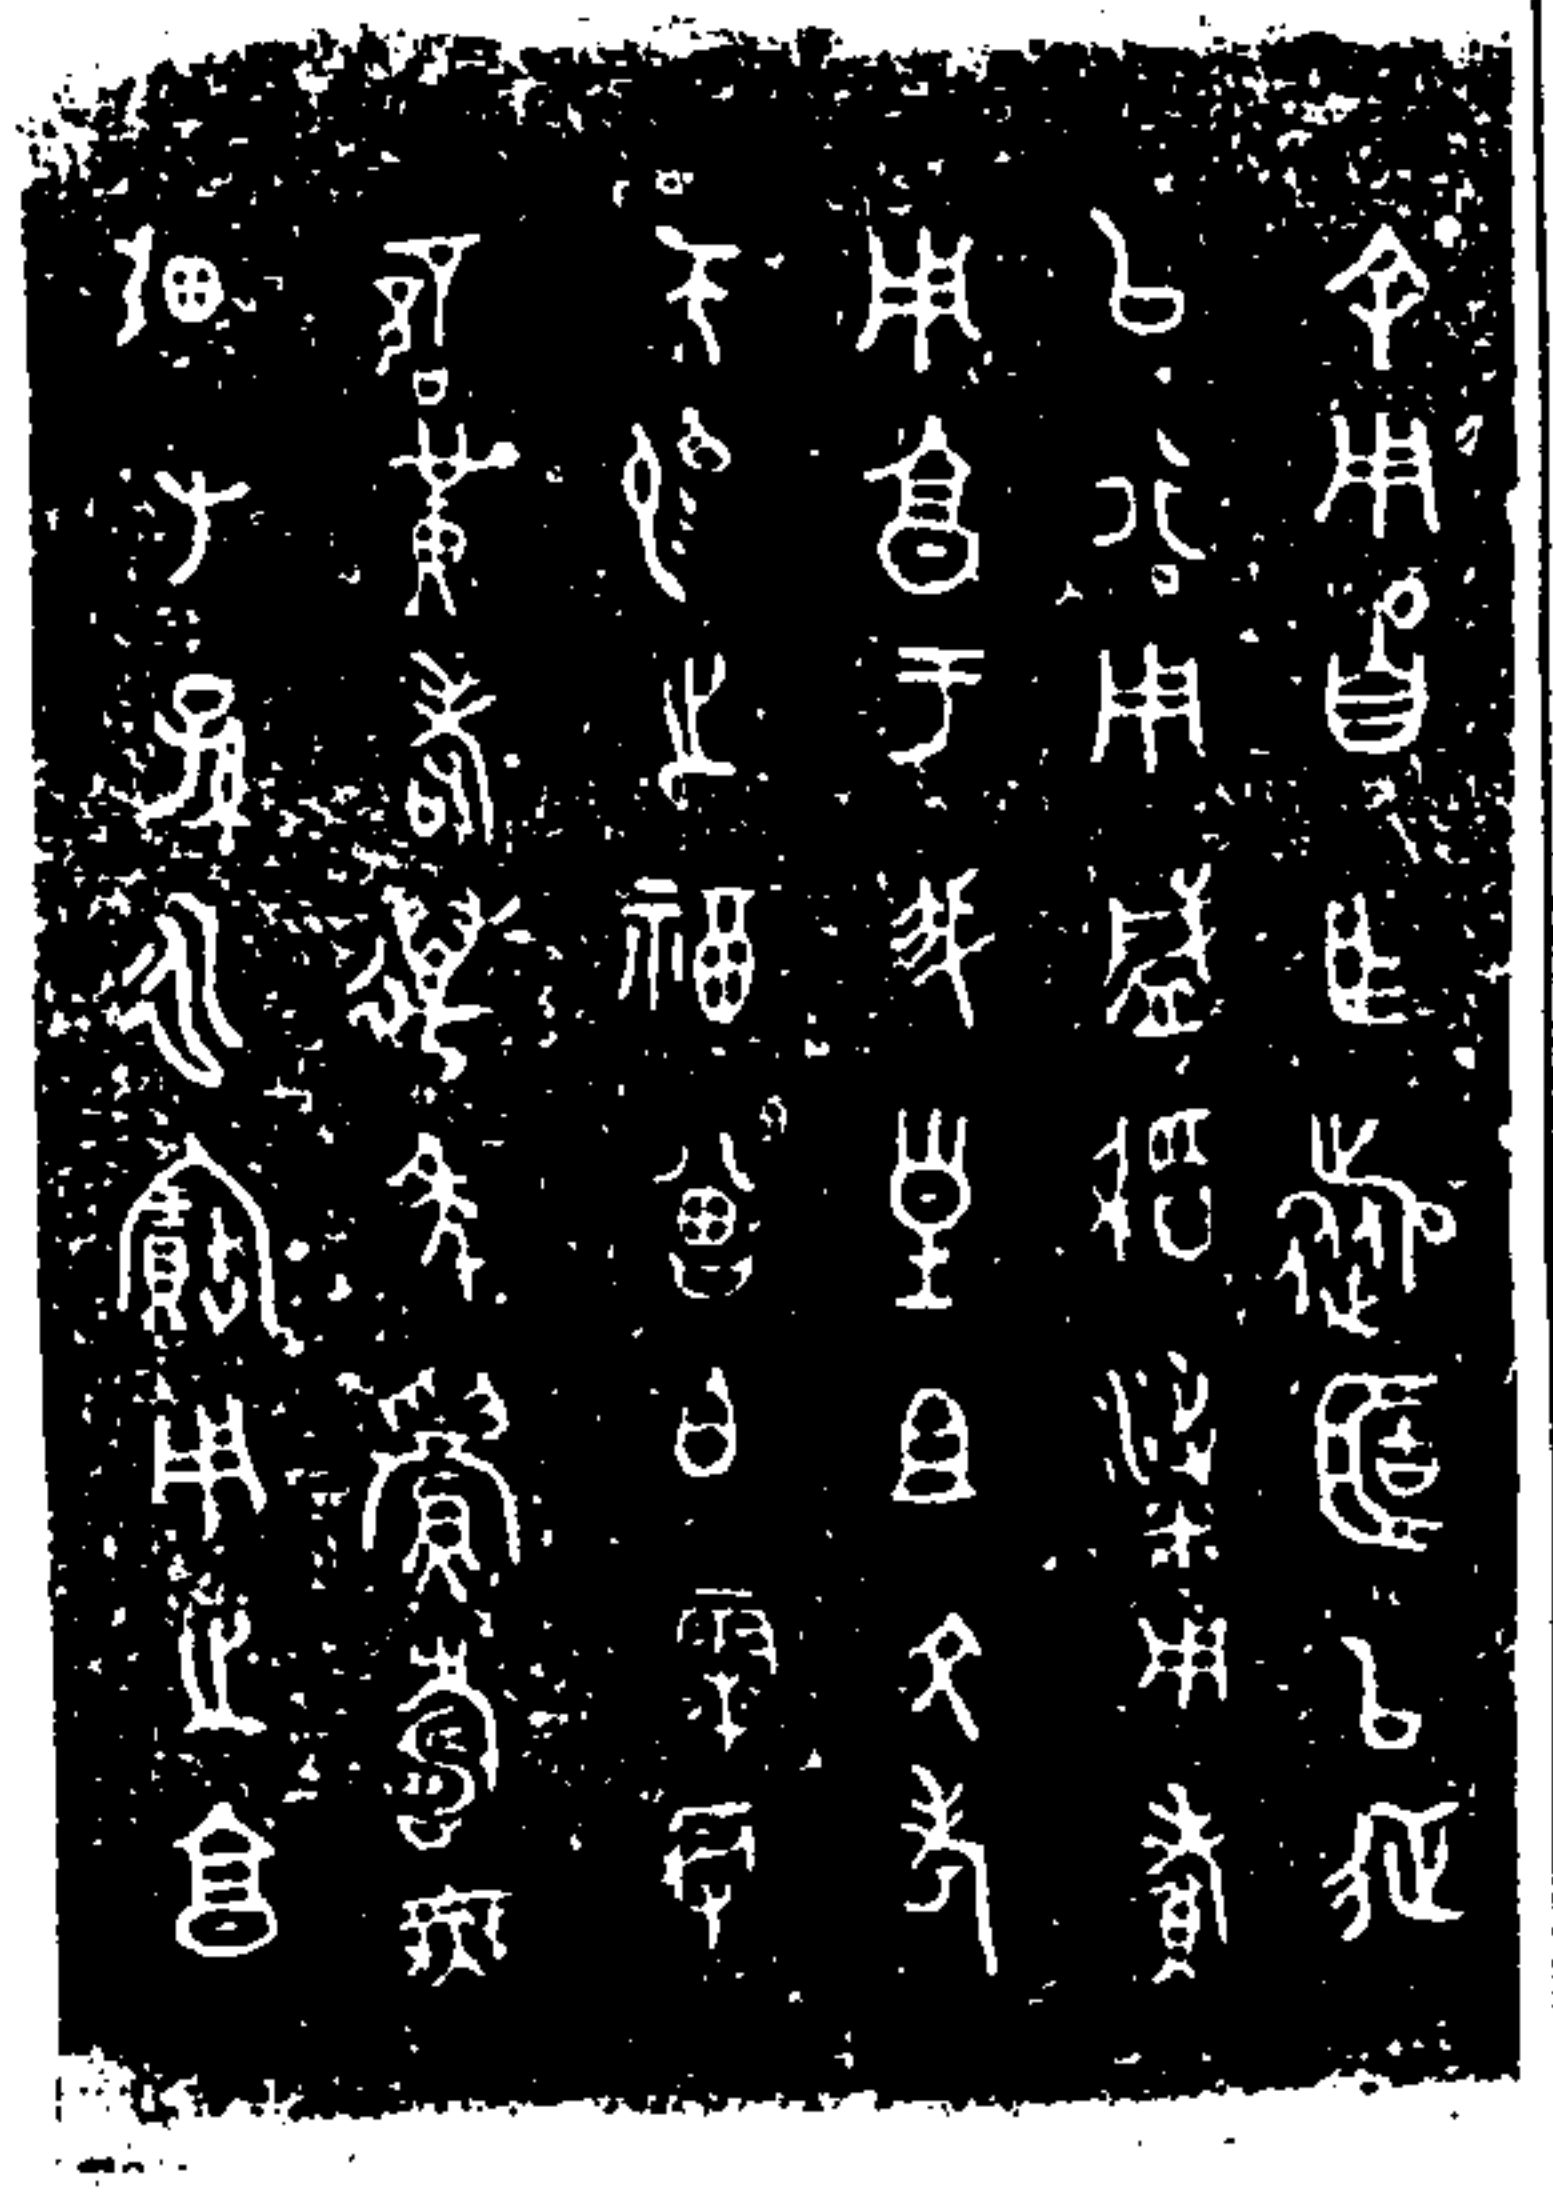 余用自乍旅𠤳以征
以行用盛稻粱用孝
用享于我皇且文考
天易之福曾白霥叚
不黃耇萬年眉壽無
疆子孫永寶用之享